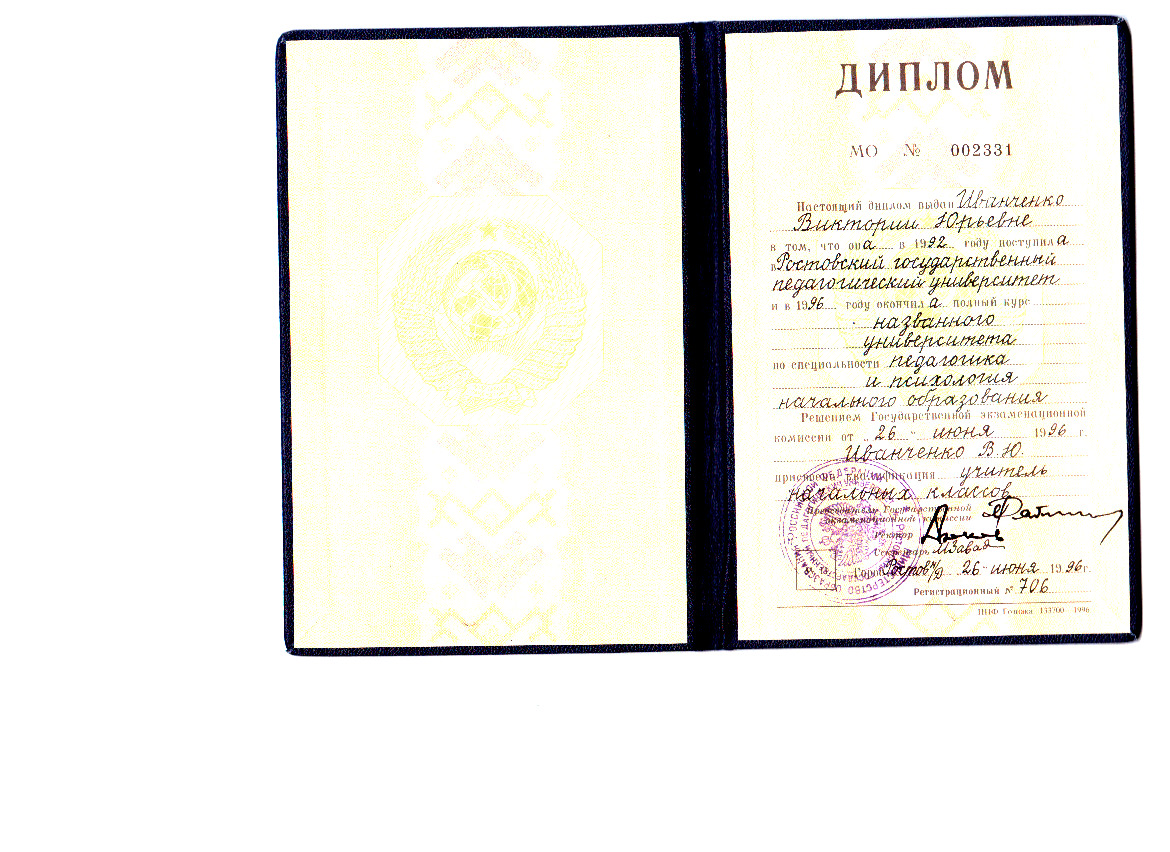 ДИПЛОМ
МО № 002331
Настоящий диплом выдан Иванченко
Виктории Юрьевне
в том, что она в 1992 году поступила
в Ростовский государственный
педагогический университет
и в 1996 году окончила полный курс
названного
университета
по специальности педагогика
и психология
начального образования
Решением Государственной экзаменационной
комиссии от „26“ июня 1996 г.
Иванченко В.Ю.
присвоена квалификация учитель
начальных классов
Председатель Государственной
экзаменационной комиссии
Ректор
Секретарь
Город Ростов н/Д 26 июня 1996г.
Регистрационный № 706
ППФ Гознака 1996